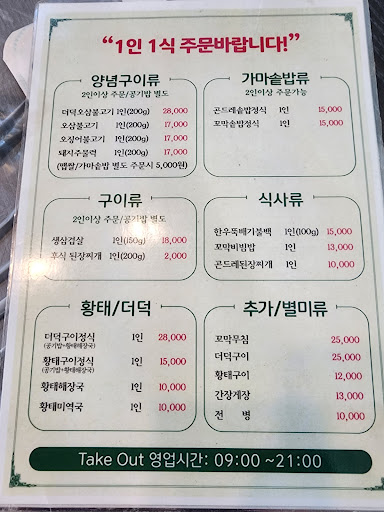 "1인 1식 주문바랍니다!"
양념구이류
2인이상 주문/공기밥 별도
더덕오삼불고기 1인(200g) 28,000
오삼불고기 1인(200g) 17,000
오징어불고기 1인(200g) 17,000
돼지주물럭 1인(200g) 17,000
(맵쌀/가마솥밥 별도 주문시 5,000원)
가마솥밥류
2인이상 주문가능
곤드레솥밥정식 1인 15,000
꼬막솥밥정식 1인 15,000
구이류
2인이상 주문/공기밥 별도
생삼겹살 1인(150g) 18,000
후식 된장찌개 1인(200g) 2,000
식사류
한우뚝배기불백 1인(100g) 15,000
꼬막비빔밥 1인 13,000
곤드레된장찌개 1인 10,000
황태/더덕
더덕구이정식 1인 28,000
(공기밥+황태해장국)
황태구이정식 1인 15,000
(공기밥+황태해장국)
황태해장국 1인 10,000
황태미역국 1인 10,000
추가/별미류
꼬막무침 25,000
더덕구이 25,000
황태구이 12,000
간장게장 13,000
전 병 10,000
Take Out 영업시간: 09:00 ~21:00